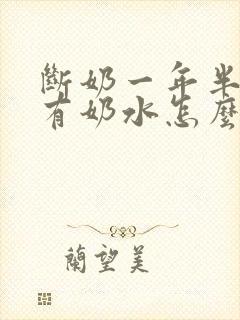 斷奶一年半
有奶水怎麼
蘭望美